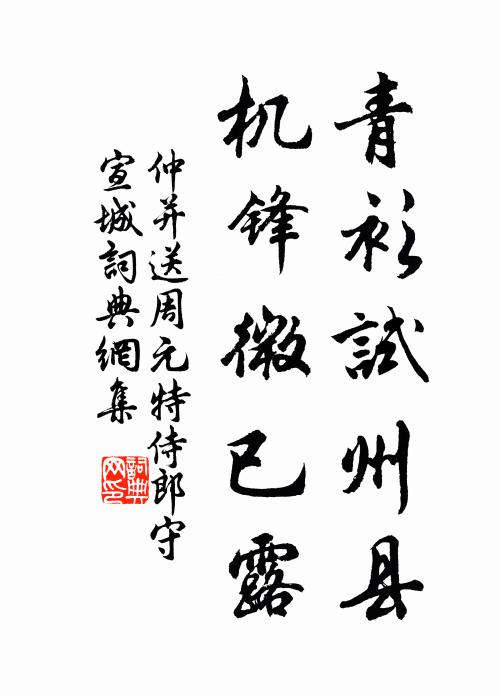 青衫試州县
机锋微已露
仲并送周元特侍郎守
宣城詞典網集
詞典网印